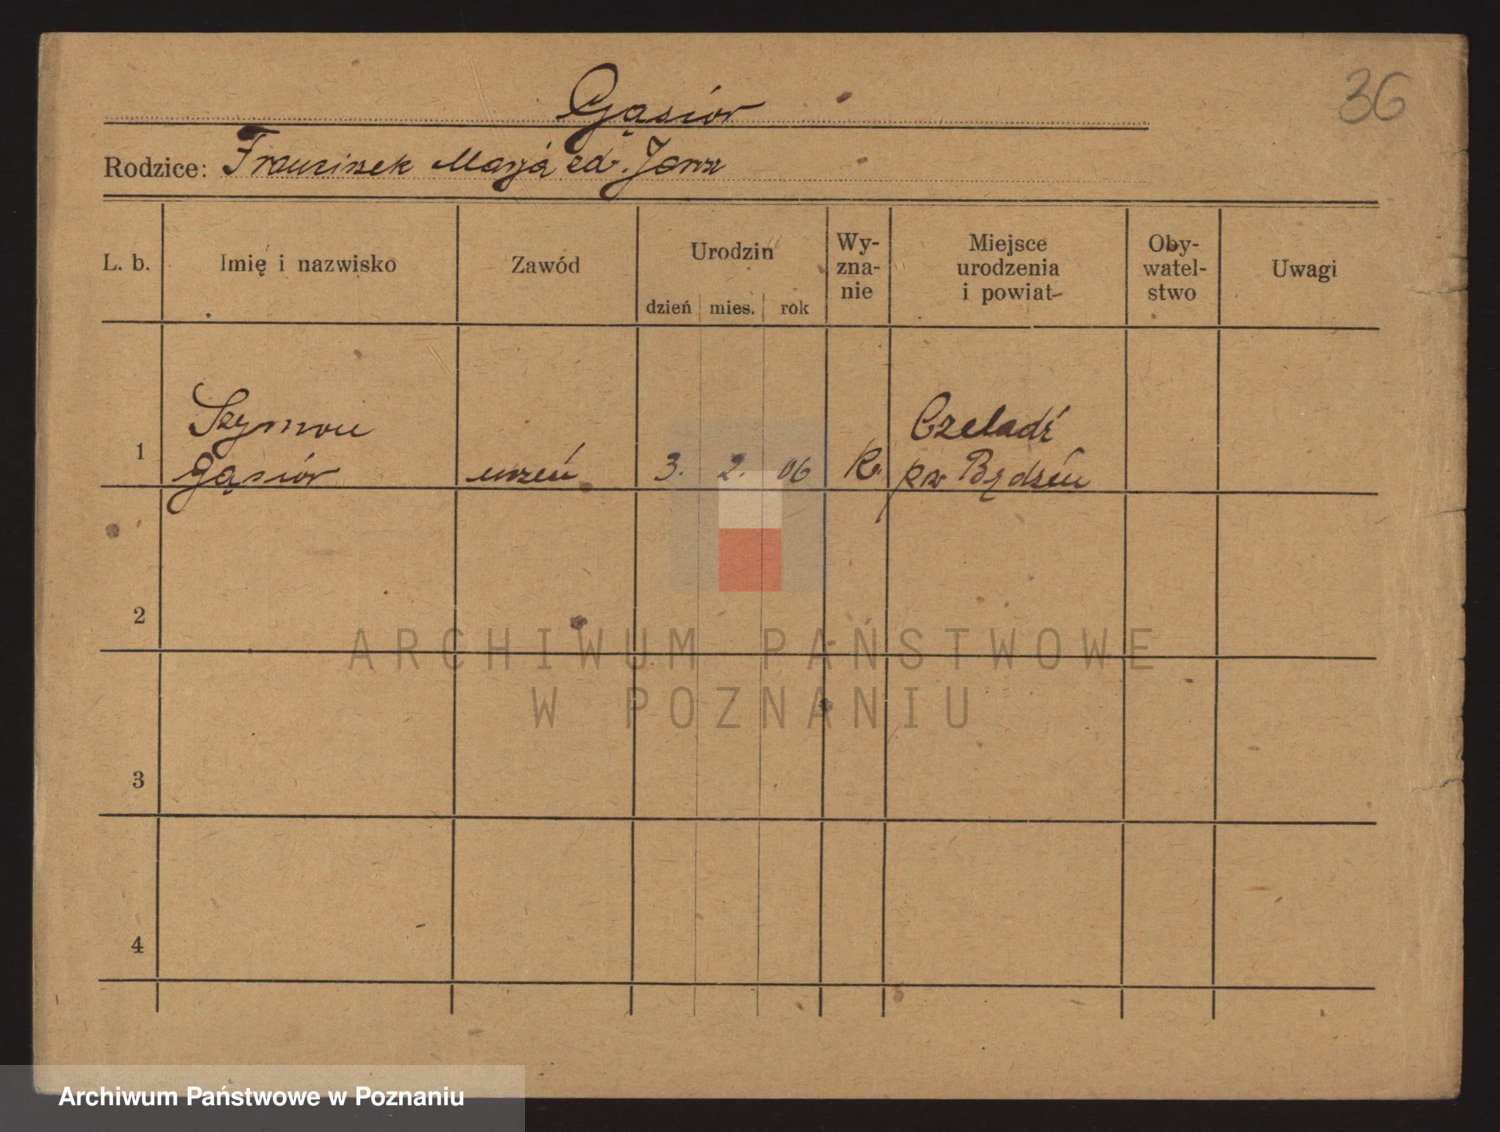 36
Gąsior
Rodzice: Franciszek Marja zd. Jarza
L. b.
Imię i nazwisko
Zawód
Urodzin
dzień mies. rok
Wy-
zna-
nie
Miejsce
urodzenia
i powiat
Oby-
watel-
stwo
Uwagi
1
Szymon
Gąsiór
uczeń
3. 2. 06
k.
Czeladź
pw Będzin
2
3
4
ARCHIWUM PAŃSTWOWE
W POZNANIU
Archiwum Państwowe w Poznaniu